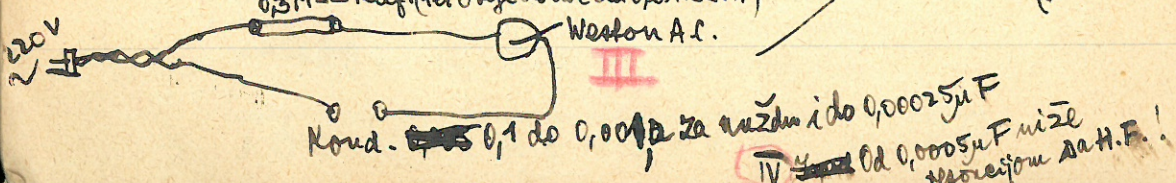 220V
~
Weston A.C.
III
Kond. 0,1 do 0,001, za nuždu i do 0,00025µF
IV Od 0,0005µF niže
sa H.F.!